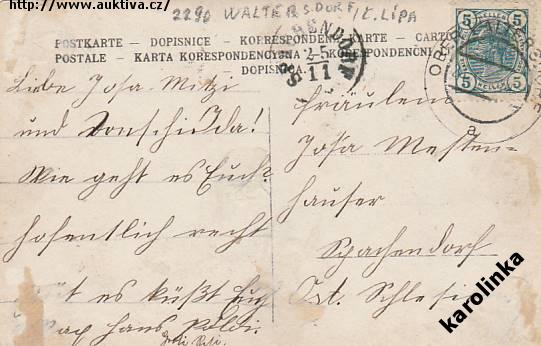 http://www.auktiva.cz
2290 WALTERSDORF/Č. LÍPA
POSTKARTE - DOPISNICE - KORRESPONDENZ-KARTE - CARTO
POSTALE - KARTA KORESPONDENCYJNA - KORESPONDENČNÍ
DOPISNICE
5 5
5 5
11
a
Liebe Josa Mitzi
und
Wie geht es Euch?
hoffentlich recht
es küßt Euch
Hans Poldi.
Fräulein
Josa Mesten-
hauser
Spachendorf
Öst. Schlesien
karolinka